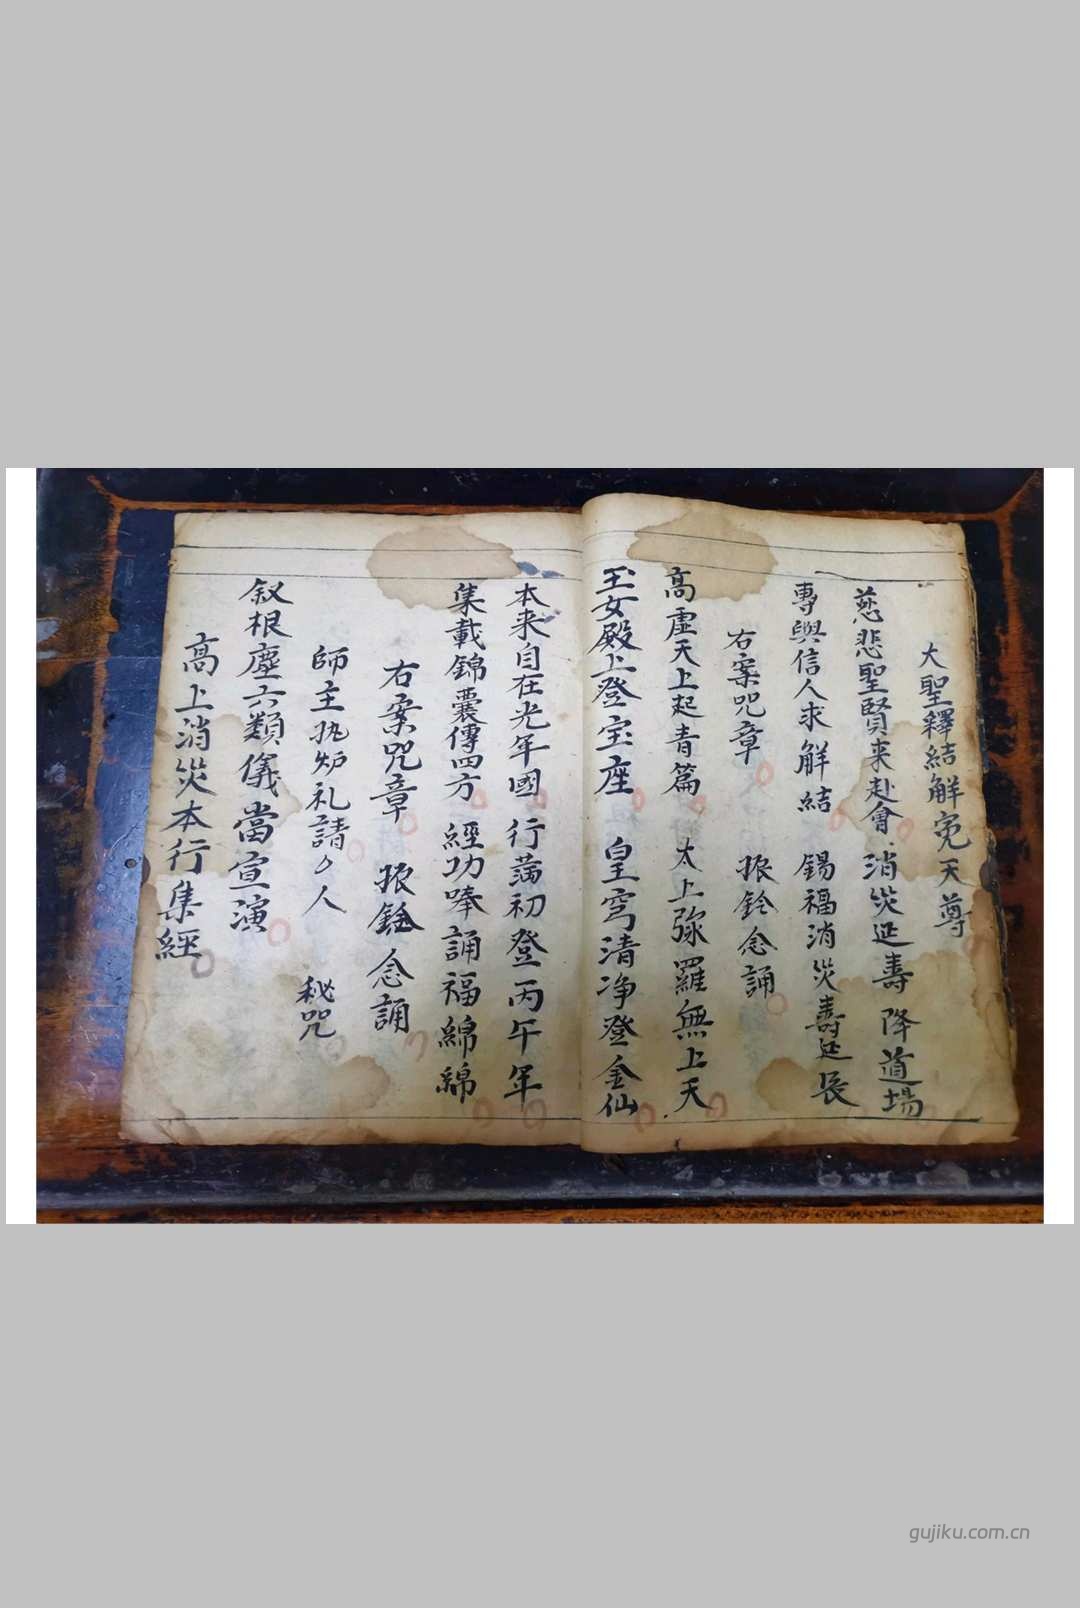 大聖釋結解冤天尊
慈悲聖賢来赴會 消災延壽降道場
專與信人求解結 錫福消災壽延長
右案咒章 振鈴念誦
高虛天上起青篇 太上弥羅無上天
玉女殿上登宝座 皇穹清净登金仙
本来自在光年國 行满初登丙午年
集載錦囊傳四方 經功奉誦福綿綿
右案咒章 振鈴念誦
師主执炉礼請 人 秘咒
叙根塵六類儀當宣演
高上消災本行集經
gujiku.com.cn